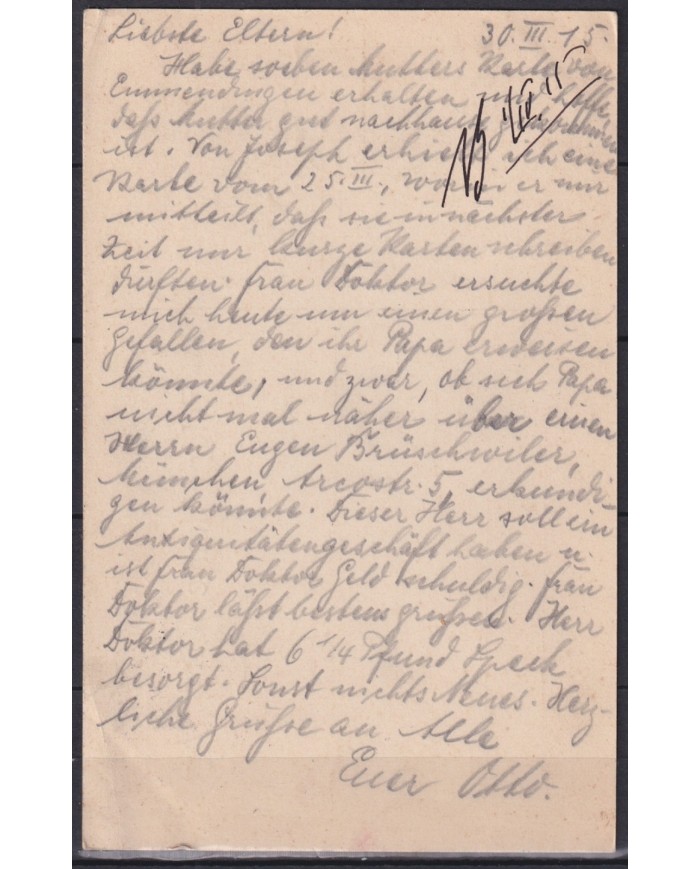 Liebste Eltern! 30.III.15.
Habe soeben Mutters Karte von
Emmendingen erhalten und hoffe,
daß Mutter gut nachhaus gekommen
ist. Von Joseph erhielt ich eine
Karte vom 25.III., worin er mir
mitteilt, daß sie in nächster
Zeit nur kurze Karten schreiben
dürften. Frau Doktor ersuchte
mich heute um einen großen
Gefallen, den ihr Papa erweisen
könnte, und zwar, ob sich Papa
nicht mal näher über einen
Herrn Eugen Brüschwiler,
München Arcostr. 5, erkundi-
gen könnte. Dieser Herr soll ein
Antiquitätengeschäft haben u.
ist Frau Doktor Geld schuldig. Frau
Doktor läßt bestens grüßen. Herr
Doktor hat 6 1/4 Pfund Speck
besorgt. Sonst nichts Neues. Herz-
liche Grüße an Alle
Euer Otto.
1/IV.15